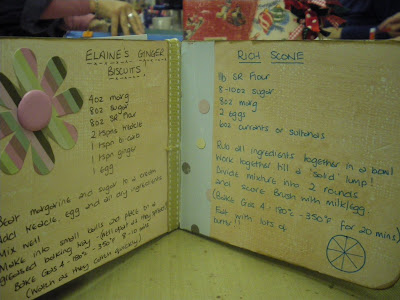 ELAINE'S GINGER
BISCUITS
4oz marg
8oz Sugar
8oz SR flour
2 tspns treacle
1 tspn bicarb
1 tspn ginger
1 egg
Beat margarine and sugar to a cream
Add treacle, egg and all dry ingredients
Mix well
Make into small balls and place on a
greased baking tray
Bake Gas 4 - 180°c - 350°f 8-10 mins
(Watch as they catch quickly)
RICH SCONE
1lb SR flour
8-10oz sugar
8oz marg
2 eggs
6oz currants or sultanas
Rub all ingredients together in a bowl
Work together till a "solid lump"!
Divide mixture into 2 rounds
and score. Brush with milk/egg.
(Bake Gas 4 - 180°c - 350°f for 20 mins)
Eat with lots of
butter!